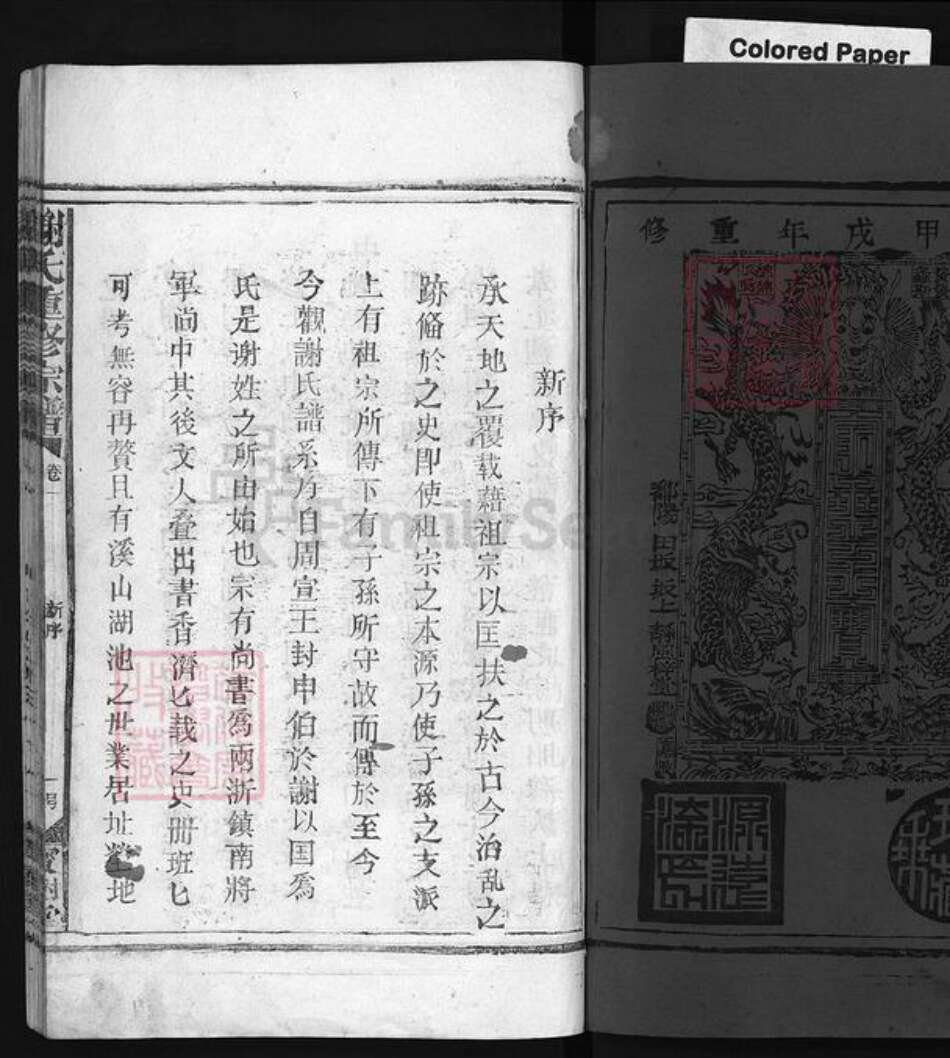 Colored Paper
甲戌年重修
鄱陽
新序
承天地之覆載藉祖宗以匡扶之於古今治亂之
跡俻於之史即使祖宗之本源乃使子孫之支派
上有祖宗所傳下有子孫所守故而傳於至今
今觀謝氏譜系乃自周宣王封申伯於謝以国為
氏是谢姓之所由始也宗有尚書為兩浙鎮南將
軍尚中其後文人叠出書香濟匕載之史册班匕
可考無容再贅且有溪山湖池之世業居址塋地
謝氏重修宗譜
卷一
新序
FamilySearch